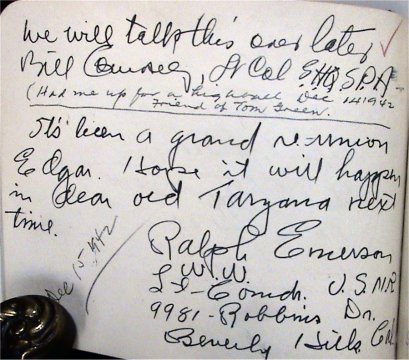 We will talk this over later ✓
Bill , Lt Col G.H.Q. S.P.A
(Had me up for a highball Dec 14 1942
Friend of Tom Green.
It's been a grand re-union
Edgar. Hope it will happen
in dear old Tarzana next
time.
Dec 15 1942
Ralph Emerson
W.W.
Lt-Comdr. U.S.N.R.
9981-Robbins Dr.
Beverly Hills Cal.